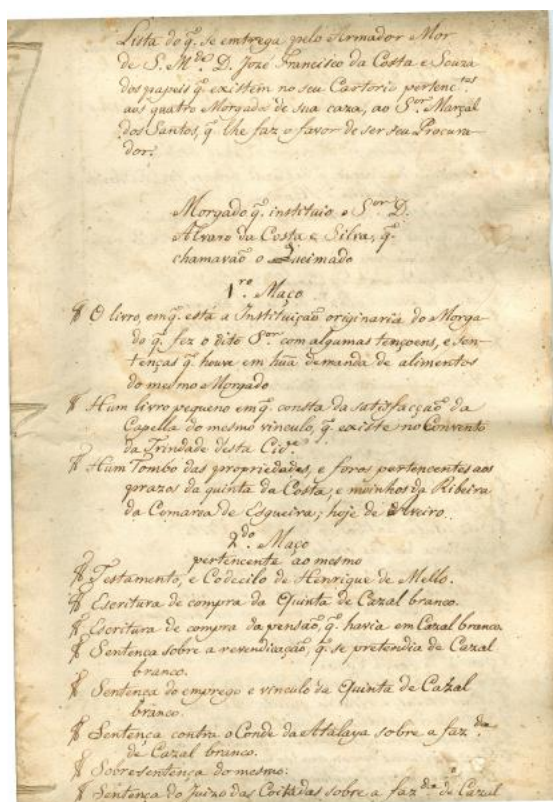 Lista do q̃. se emtrega pelo Armador Mor
de S. Mde. D. Jozé Francisco da Costa e Souza
dos papeis q̃. existem no seu Cartorio pertenctes.
aos quatro Morgados de sua caza, ao Sor. Marçal
dos Santos, q̃. lhe faz o favor de ser seu Procura-
dor.
Morgado q̃. instituio o Sor. D.
Alvaro da Costa e Silva, q̃.
chamavaõ o Queimado
1ro. Maço
O livro, em q̃. está a Instituiçaõ originaria do Morga-
do q̃. fez o dito Sor. com algumas tençoens, e sen-
tenças q̃. houve em huã demanda de alimentos
do mesmo Morgado
Hum livro pequeno em q̃. consta da satisfacçaõ da
Capella do mesmo vinculo, q̃. existe no Convento
da Trindade desta Cide.
Hum Tombo das propriedades, e foros pertencentes aos
prazos da quinta da Costa, e moinhos da Ribeira
da Comarca de Esgueira; hoje de Aveiro.
2do. Maço
pertencente ao mesmo
Testamento, e Codecilo de Henrique de Mello.
Escritura de compra da Quinta de Cazal branco.
Escritura de compra da pensaõ, q̃. havia em Cazal branco.
Sentença sobre a revendicaçaõ, q̃. se pretendia de Cazal
branco.
Sentença do emprego e vinculo da Quinta de Cazal
branco.
Sentença contra o Conde da Atalaya sobre a fazda.
de Cazal branco.
Sobresentença do mesmo.
Sentença do Juizo das Coitadas sobre a fazda. de Cazal